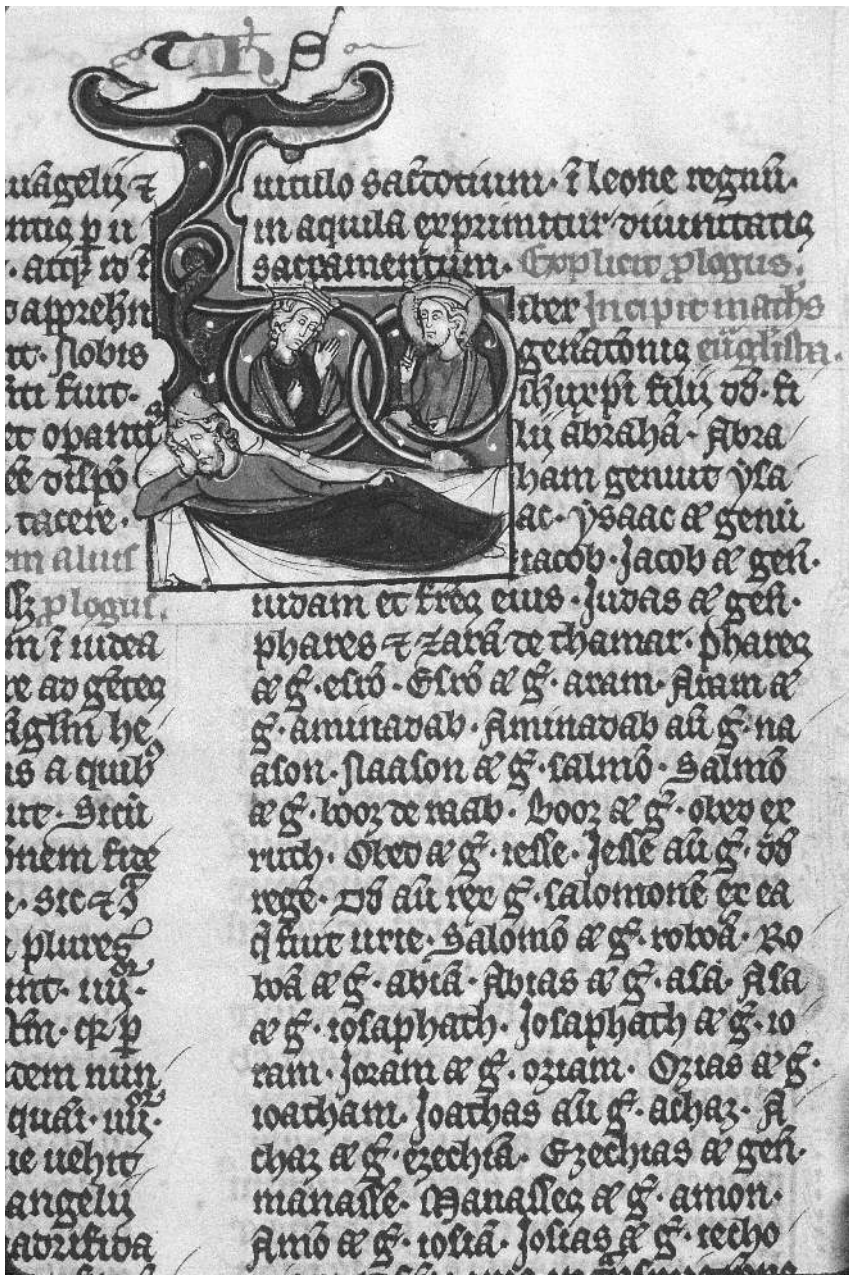 uāgelij ⁊
ntiq̢ ꝑ ii
atq̢ īō ī
apprehn
nt. Nobis
iti fuit.
et opantis
eē dispō
tacere.
em alius
plogus.
m ī iudea
re ad gētes
āglm he
is a quib᷒
ut. Sicū
inem fide
sic ⁊
plures
unt. iiii.
dem nun
quā. iiii.
ie uehit
angelij
adrifida
uitulo sac̄dotium. ī leone regnū.
in aquila exprimitur diuinitatis
sacramentum. Explicit ꝓlogus.
iber Incipit math̄s
gen̄atōnis euḡlista.
ihu xpi filij dđ. fi
lij abrahā. Abra
ham genuit ysa
ac. ysaac ae genū
iacob. Jacob ae gen̄.
iudam et frēs eius. Judas ae gen̄.
phares ⁊ zarā de thamar. phares
ae ḡ. esrō. Esrō ae ḡ. aram. Aram ae
ḡ. aminadab. Aminadab aū ḡ. na
ason. Naason ae ḡ. salmō. Salmō
ae ḡ. booz de raab. Booz ae ḡ. obed ex
ruth. Obed ae ḡ. iesse. Jesse aū ḡ. dđ
regē. Dđ aū rex ḡ. salomonē ex ea
q̄ fuit urie. Salomō ae ḡ. roboā. Ro
boā ae ḡ. abiā. Abias ae ḡ. asā. Asa
ae ḡ. iosaphath. Josaphath ae ḡ. io
ram. Joram ae ḡ. oziam. Ozias ae ḡ.
ioatham. Joathas aū ḡ. achaz. A
chaz ae ḡ. ezechiā. Ezechias ae gen̄.
manassē. Manasses ae ḡ. amon.
Amō ae ḡ. iosiā. Josias ae ḡ. iecho